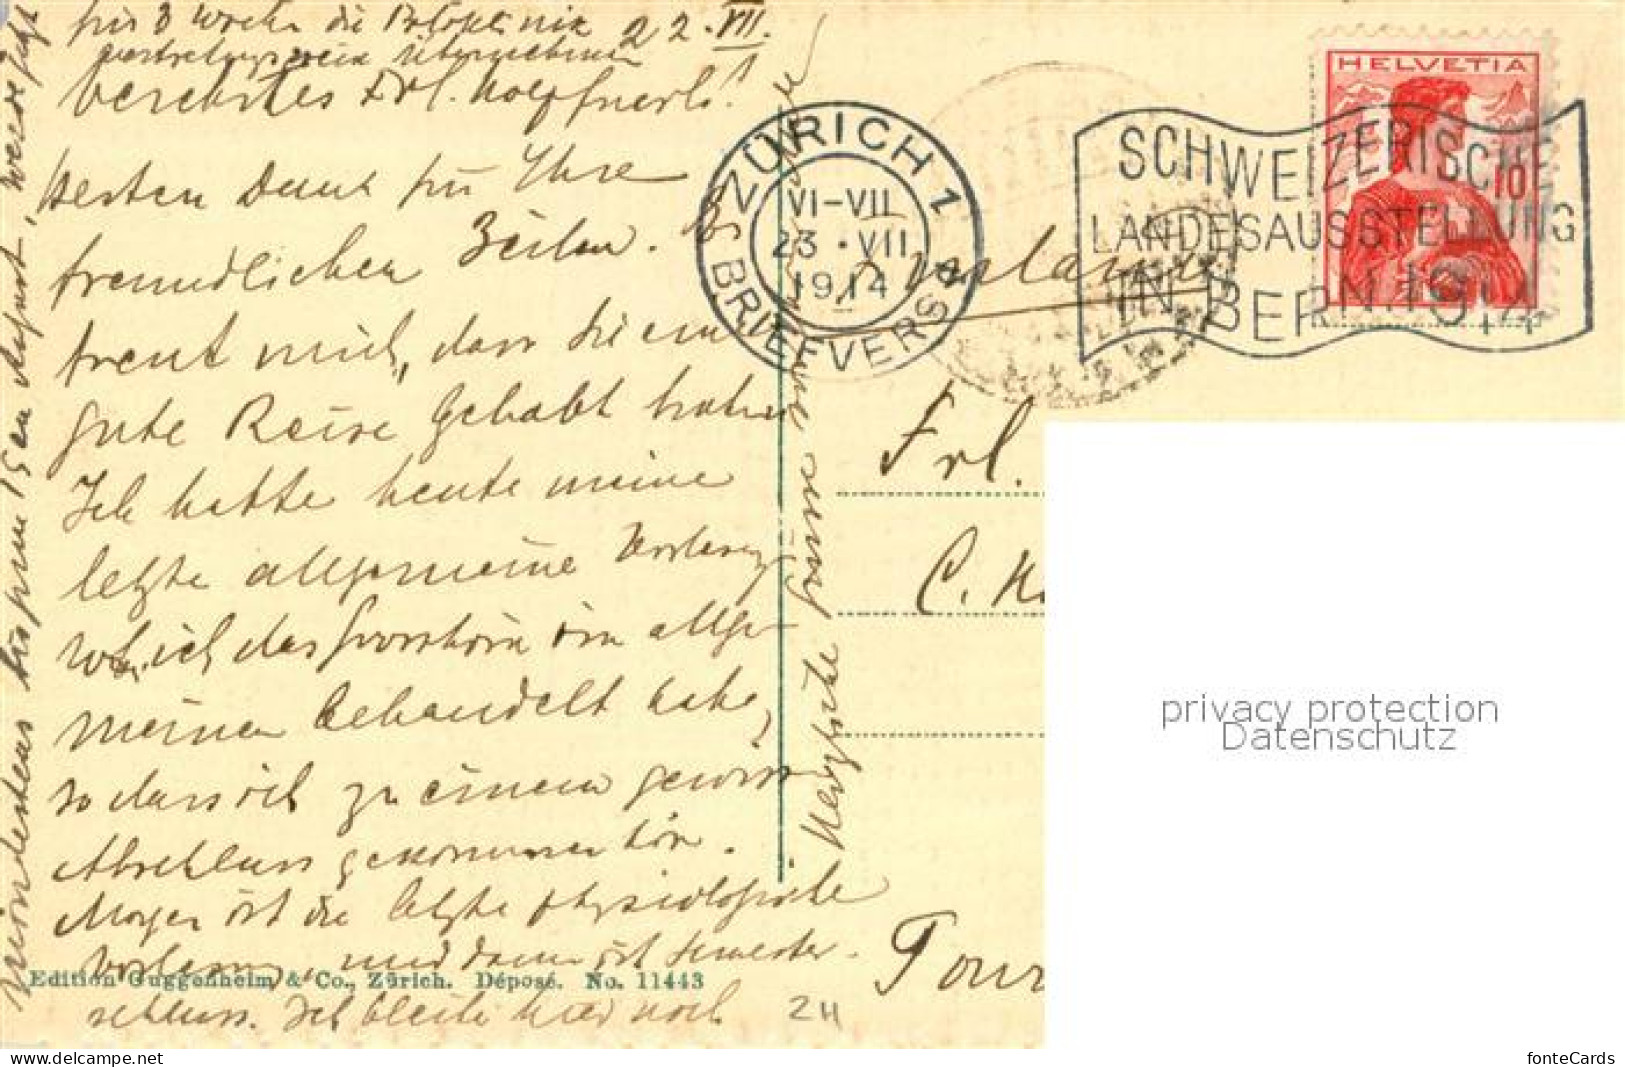 für 3 Wochen die
22. VII.
verehrtes Frl.
Besten Dank für Ihre
freundlichen Zeilen. Es
freut mich, dass Sie eine
gute Reise gehabt haben
Ich hatte heute meine
letzte allgemeine Vorlesung
ich das Grosshirn im allge-
meinen behandelt habe,
so dass ich zu einem gewissen
Abschluss gekommen bin.
Morgen ist die letzte physiologische
Vorlesung, und dann ist Semester-
schluss. Ich bleibe hier noch
mindestens bis zum 15en August, werde jetzt
Herzliche Grüsse
Edition Guggenheim & Co., Zürich. Déposé. No. 11443
24
ZÜRICH 1
VI-VII
23.VII
1914
BRIEFVERS
SCHWEIZERISCHE
LANDESAUSSTELLUNG
IN BERN.1914
HELVETIA
10
Frl.
C.
privacy protection
Datenschutz
fonteCards
https://www.delcampe.net